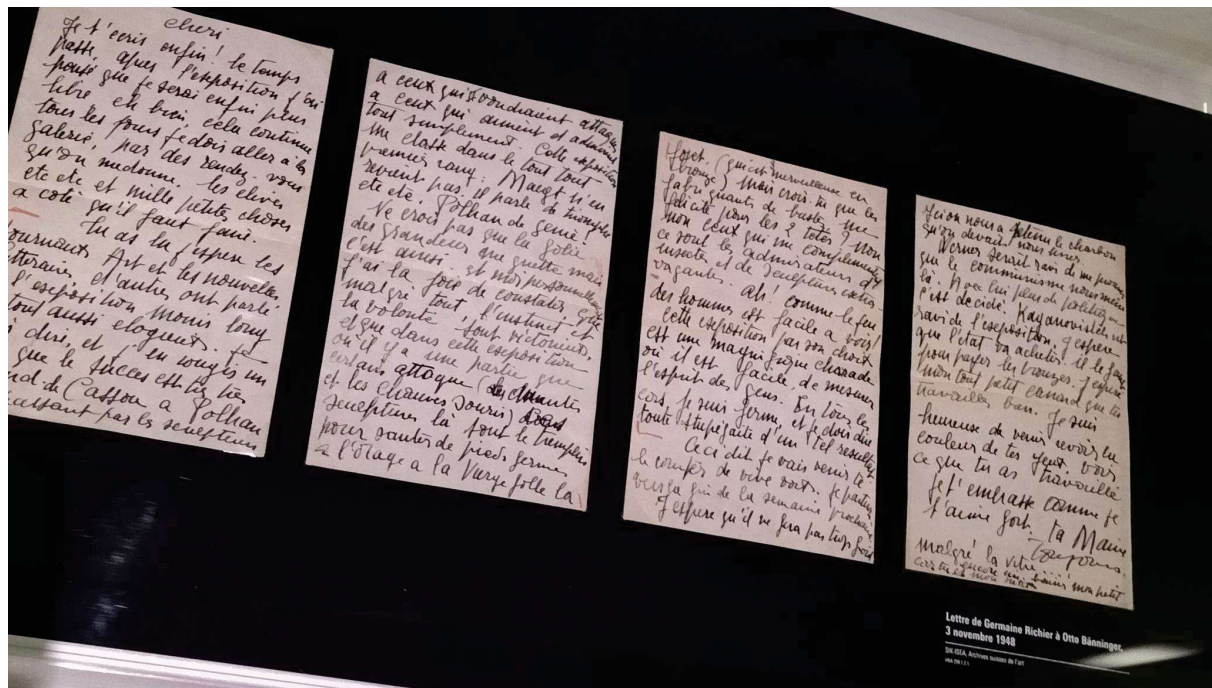 cheri
Je t'ecris enfin! le temps
passe, apres l'exposition j'ai
pensé que je serai enfin plus
libre eh bien, cela continue
tous les jours je dois aller à la
galerie, par des rendez-vous
qu'on me donne. les elèves
etc etc et mille petites choses
a coté qu'il faut faire.
Tu as lu espere les
journaux Art et les nouvelles
litteraires, d'autres ont parlé
l'exposition moins long
tout aussi eloquent.
dire, et j'en rougis un
que le succes est très
(Cassou a Polhan
passant par les sculpteurs
a ceux qui voudraient attaquer
a ceux qui aiment et admirent
tout simplement. Cette exposition
me classe dans le tout tout
premier rang. Maegt n'en
revient pas, il parle de triomphe
etc etc. Polhan de genie!
Ne crois pas que la folie
des grandeurs me guette mais
c'est ainsi. et moi personnellement
j'ai la joie de constater que
malgre tout, l'instinct et
la volonté sont victorieux,
et que dans cette exposition
où il y a une partie que
certains attaque (les mantes
et les chauves souris) ces
sculptures là sont le tremplin
pour sauter de pieds fermes
a l'Orage a la Vierge folle la
Foret. (qui est merveilleuse en
bronze) mais crois-tu que les
fabriquants de buste me
félicite pour les 2 têtes? non
non ceux qui me complimente
ce sont les admirateurs d'
insectes et de sculptures extra
vagantes. Ah! comme le jeu
des hommes est facile a voir!
Cette exposition par son choix
est une magnifique charade
où il est facile de mesurer
l'esprit des gens. En tous les
cas, je suis ferme, et je dois dire
toute stupéfaite d'un tel resultat
Ceci dit je vais venir te
le conter de vive voix. je partirai
vers la fin de la semaine prochaine.
J'espere qu'il ne fera pas trop froid
Ici on nous a retenu le charbon
qu'on devait nous livrer
Werner serait ravi de me prouver
que le communisme nous mène
là. Avec lui plus de politique
c'est decidé. Kaganovitch est
ravi de l'exposition, j'espere
que l'état va acheter. Il le faut
pour payer les bronzes. J'espere
mon tout petit canard que tu
travailles bien. Je suis
heureuse de venir revoir la
couleur de tes yeux. voir
ce que tu as travaillé
Je t'embrasse comme je
t'aime fort. ta Maine
Toujours.
malgré la vie....!
encore un baiser mon petit
car tu es mon
Lettre de Germaine Richier à Otto Bänninger,
3 novembre 1948
SIK-ISEA, Archives suisses de l'art